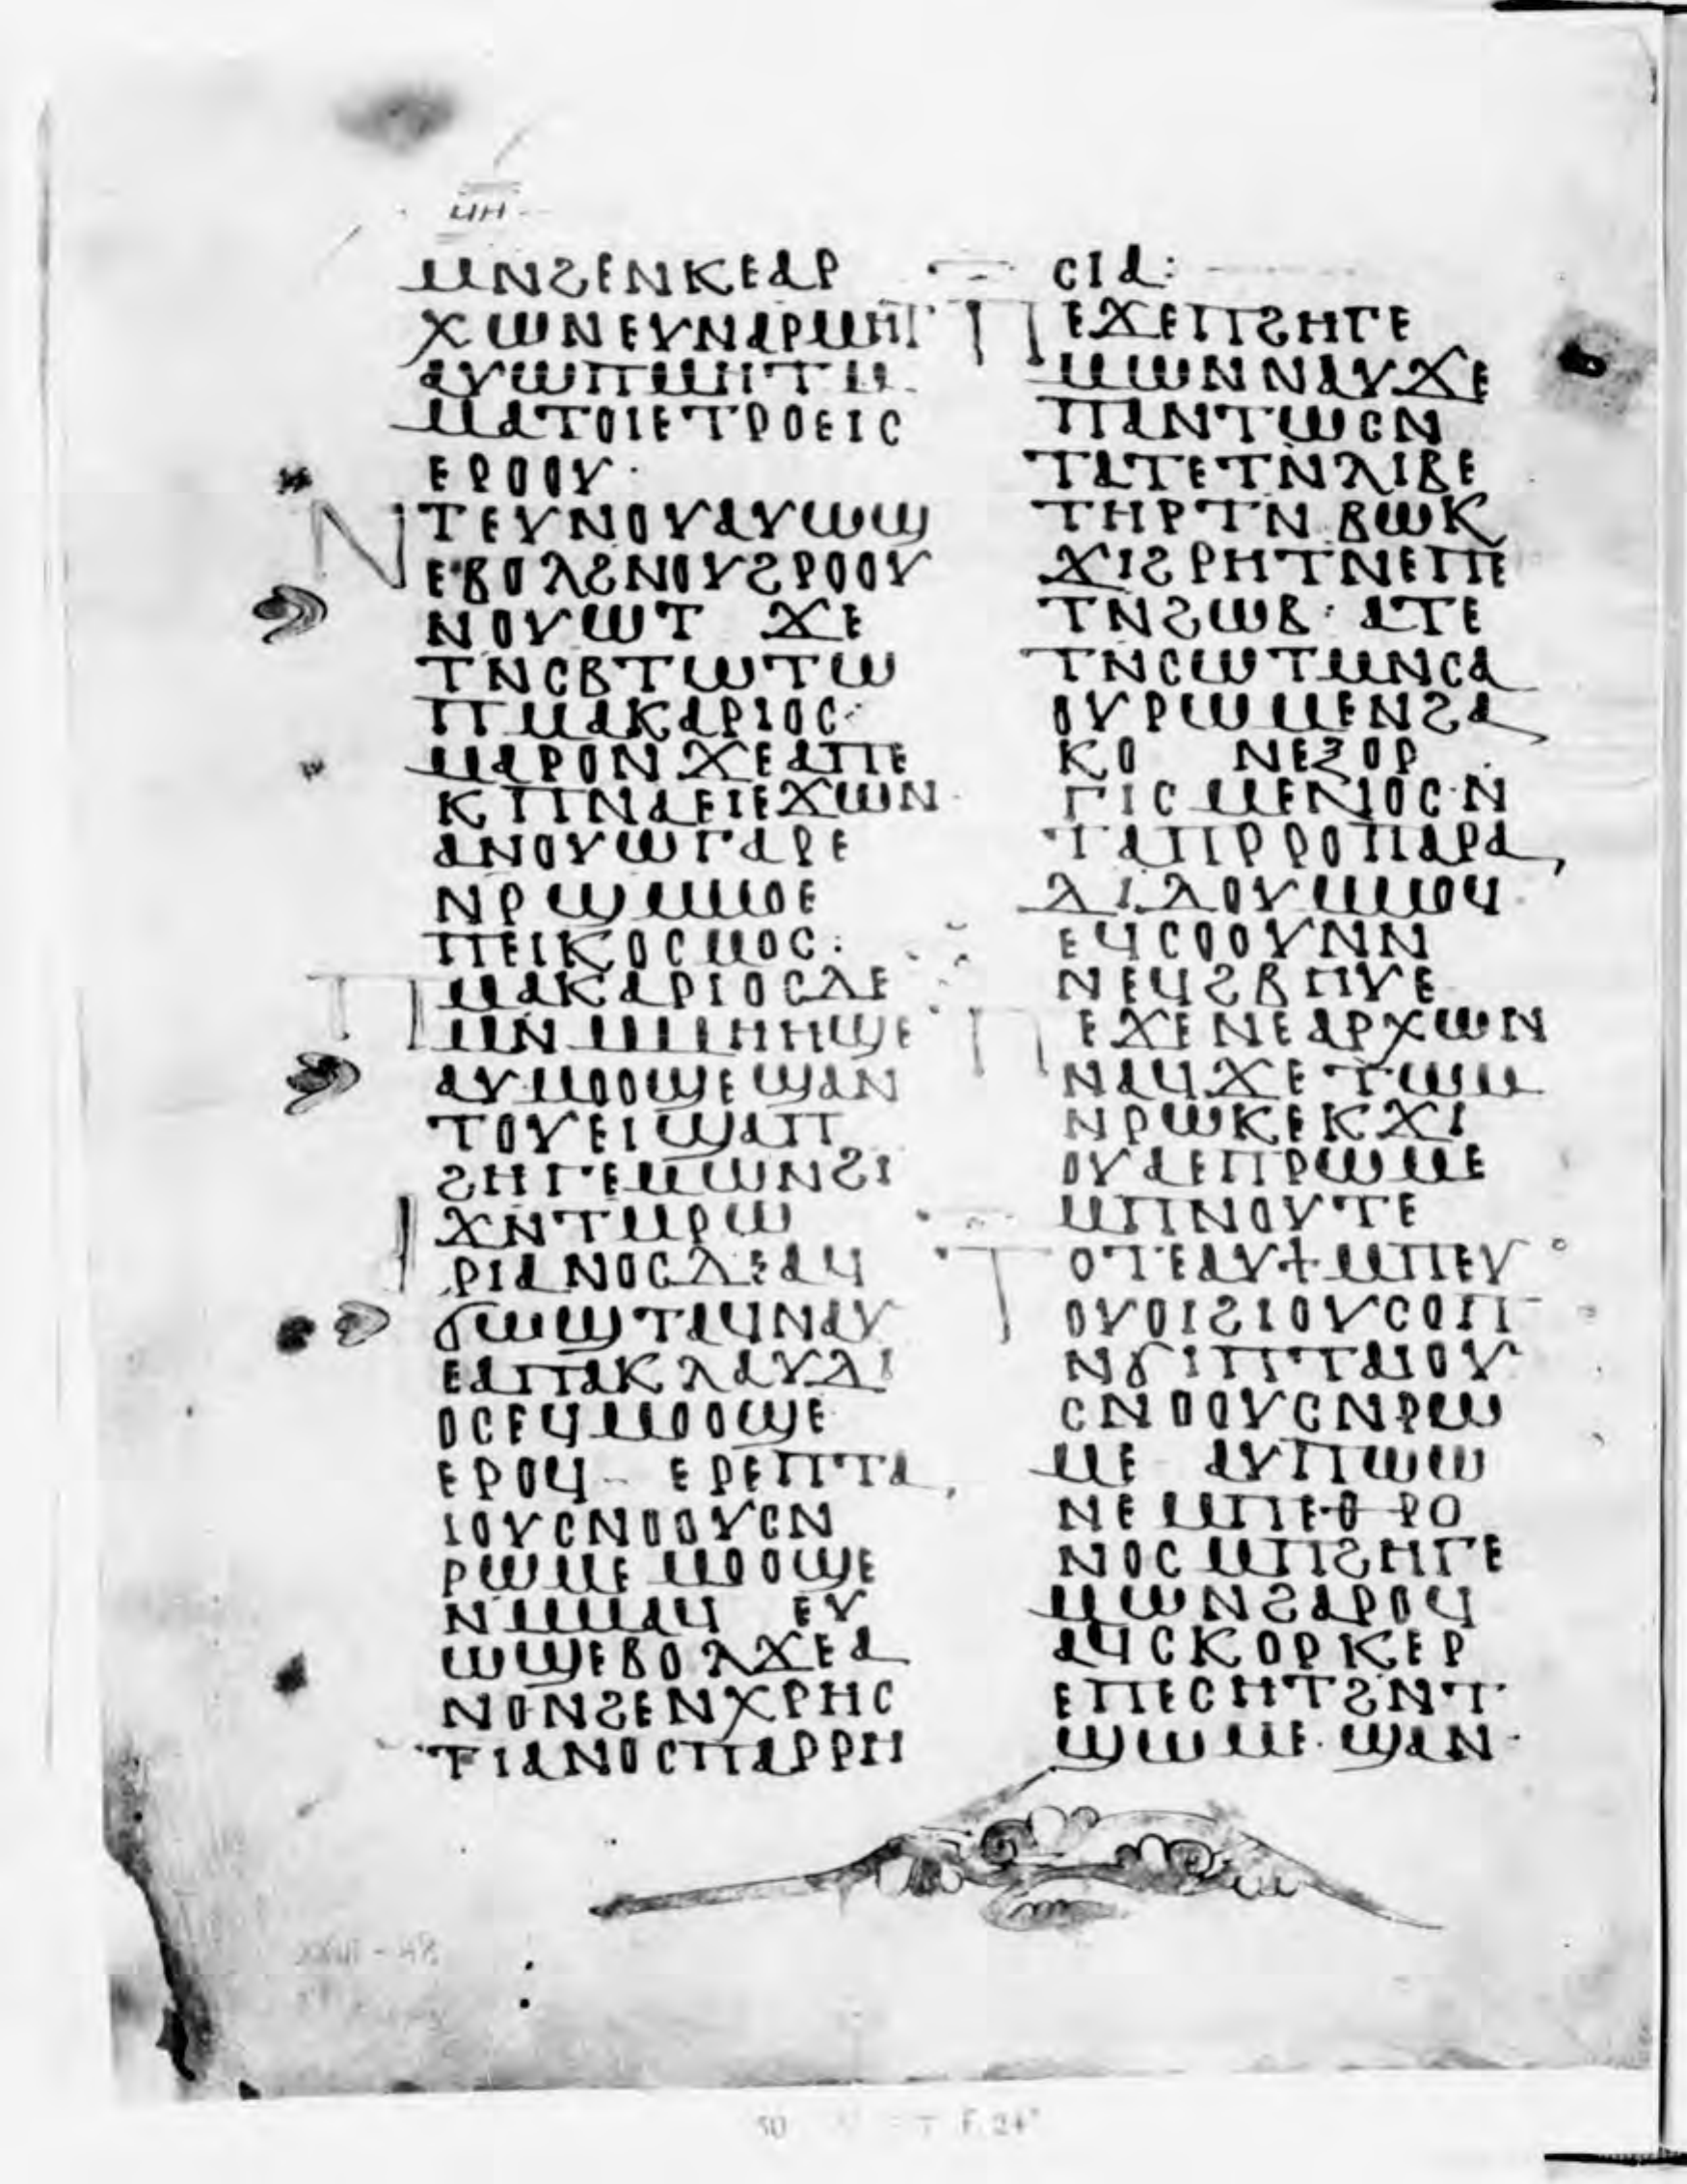 ϤΗ
ⲙⲛϩⲉⲛⲕⲉⲁⲣ
ⲭⲱⲛⲉⲩⲛⲁⲣⲙⲏⲧ
ⲁⲩⲱⲡⲙⲏⲧⲙ
ⲙⲁⲧⲟⲓⲉⲧⲣⲟⲉⲓⲥ
ⲉⲣⲟⲟⲩ·
ⲛⲧⲉⲩⲛⲟⲩⲁⲩⲱϣ
ⲉⲃⲟⲗϩⲛⲟⲩϩⲣⲟⲟⲩ
ⲛⲟⲩⲱⲧ ϫⲉ
ⲧⲛⲥⲃⲧⲱⲧⲱ
ⲡⲙⲁⲕⲁⲣⲓⲟⲥ·
ⲙⲁⲣⲟⲛϫⲉⲁⲡⲉ
ⲕⲡⲛⲁⲉⲓⲉϫⲱⲛ
ⲁⲛⲟⲩⲱⲅⲁⲣⲉ
ⲛⲣϣⲙⲙⲟⲉ
ⲡⲉⲓⲕⲟⲥⲙⲟⲥ:
ⲡⲙⲁⲕⲁⲣⲓⲟⲥⲇⲉ
ⲙⲛⲙⲙⲏⲏϣⲉ
ⲁⲩⲙⲟⲟϣⲉϣⲁⲛ
ⲧⲟⲩⲉⲓϣⲁⲡ
ϩⲏⲅⲉⲙⲱⲛϩⲓ
ϫⲛⲧⲙⲣⲱ
ⲁⲣⲓⲁⲛⲟⲥⲇⲉⲁϥ
ϭⲱϣⲧⲁϥⲛⲁⲩ
ⲉⲁⲡⲁⲕⲗⲁⲩⲇⲓ
ⲟⲥⲉϥⲙⲟⲟϣⲉ
ⲉⲣⲟϥ ⲉⲣⲉⲡⲧⲁ
ⲓⲟⲩⲥⲛⲟⲟⲩⲥⲛ
ⲣⲱⲙⲉⲙⲟⲟϣⲉ
ⲛⲙⲙⲁϥ ⲉⲩ
ⲱϣⲉⲃⲟⲗϫⲉⲁ
ⲛⲟⲛϩⲉⲛⲭⲣⲏⲥ
ⲧⲓⲁⲛⲟⲥⲡⲁⲣⲣⲏ
ⲥⲓⲁ:
ⲡⲉϫⲉⲡϩⲏⲅⲉ
ⲙⲱⲛⲛⲁⲩϫⲉ
ⲡⲁⲛⲧⲱⲥⲛ
ⲧⲁⲧⲉⲧⲛⲗⲓⲃⲉ
ⲧⲏⲣⲧⲛ ⲃⲱⲕ
ϫⲓϩⲣⲏⲧⲛⲉⲡⲉ
ⲧⲛϩⲱⲃ· ⲁⲧⲉ
ⲧⲛⲥⲱⲧⲙⲛⲥⲁ
ⲟⲩⲣⲱⲙⲉⲛϩⲁ
ⲕⲟ ⲛⲉⲝⲟⲣ
ⲅⲓⲥⲙⲉⲛⲟⲥ·ⲛ
ⲧⲁⲡⲣⲣⲟⲡⲁⲣⲁ
ⲇⲓⲇⲟⲩⲙⲙⲟϥ
ⲉϥⲥⲟⲟⲩⲛⲛ
ⲛⲉϥϩⲃⲏⲩⲉ
ⲡⲉϫⲉⲛⲉⲁⲣⲭⲱⲛ
ⲛⲁϥϫⲉⲧⲱⲙ
ⲛⲣⲱⲕⲉⲕϫⲓ
ⲟⲩⲁⲉⲡⲣⲱⲙⲉ
ⲙⲡⲛⲟⲩⲧⲉ
ⲧⲟⲧⲉⲁⲩϯⲙⲡⲉⲩ
ⲟⲩⲟⲓϩⲓⲟⲩⲥⲟⲡ
ⲛϭⲓⲡⲧⲁⲓⲟⲩ
ⲥⲛⲟⲟⲩⲥⲛⲣⲱ
ⲙⲉ ⲁⲩⲡⲱⲱ
ⲛⲉⲙⲡⲉⲑⲣⲟ
ⲛⲟⲥⲙⲡϩⲏⲅⲉ
ⲙⲱⲛϩⲁⲣⲟϥ
ⲁϥⲥⲕⲟⲣⲕⲉⲣ
ⲉⲡⲉⲥⲏⲧϩⲛⲧ
ϣⲱⲙⲉ·ϣⲁⲛ